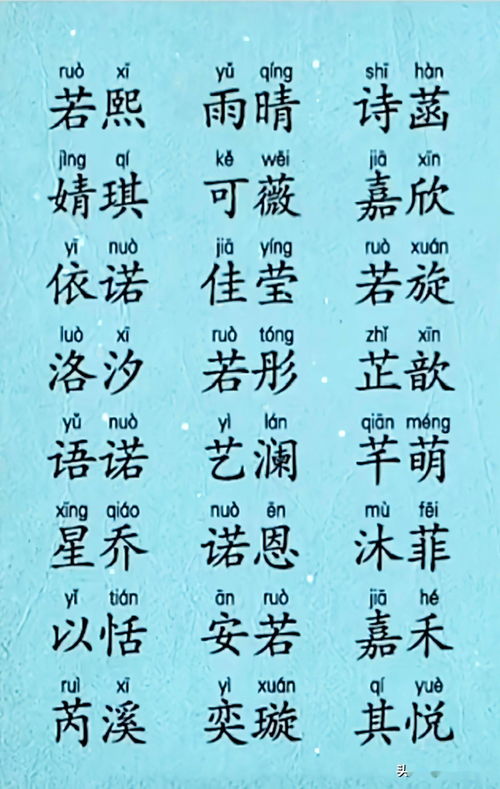 ruò xī yǔ qíng shī hàn
若熙 雨晴 诗菡
jìng qí kě wēi jiā xīn
婧琪 可薇 嘉欣
yī nuò jiā yíng ruò xuán
依诺 佳莹 若旋
luò xī ruò tóng zhǐ xīn
洛汐 若彤 芷歆
yǔ nuò yì lán qiān méng
语诺 艺澜 芊萌
xīng qiáo nuò ēn mù fēi
星乔 诺恩 沐菲
yǐ tián ān ruò jiā hé
以恬 安若 嘉禾
ruì xī yì xuán qí yuè
芮溪 奕璇 其悦
头